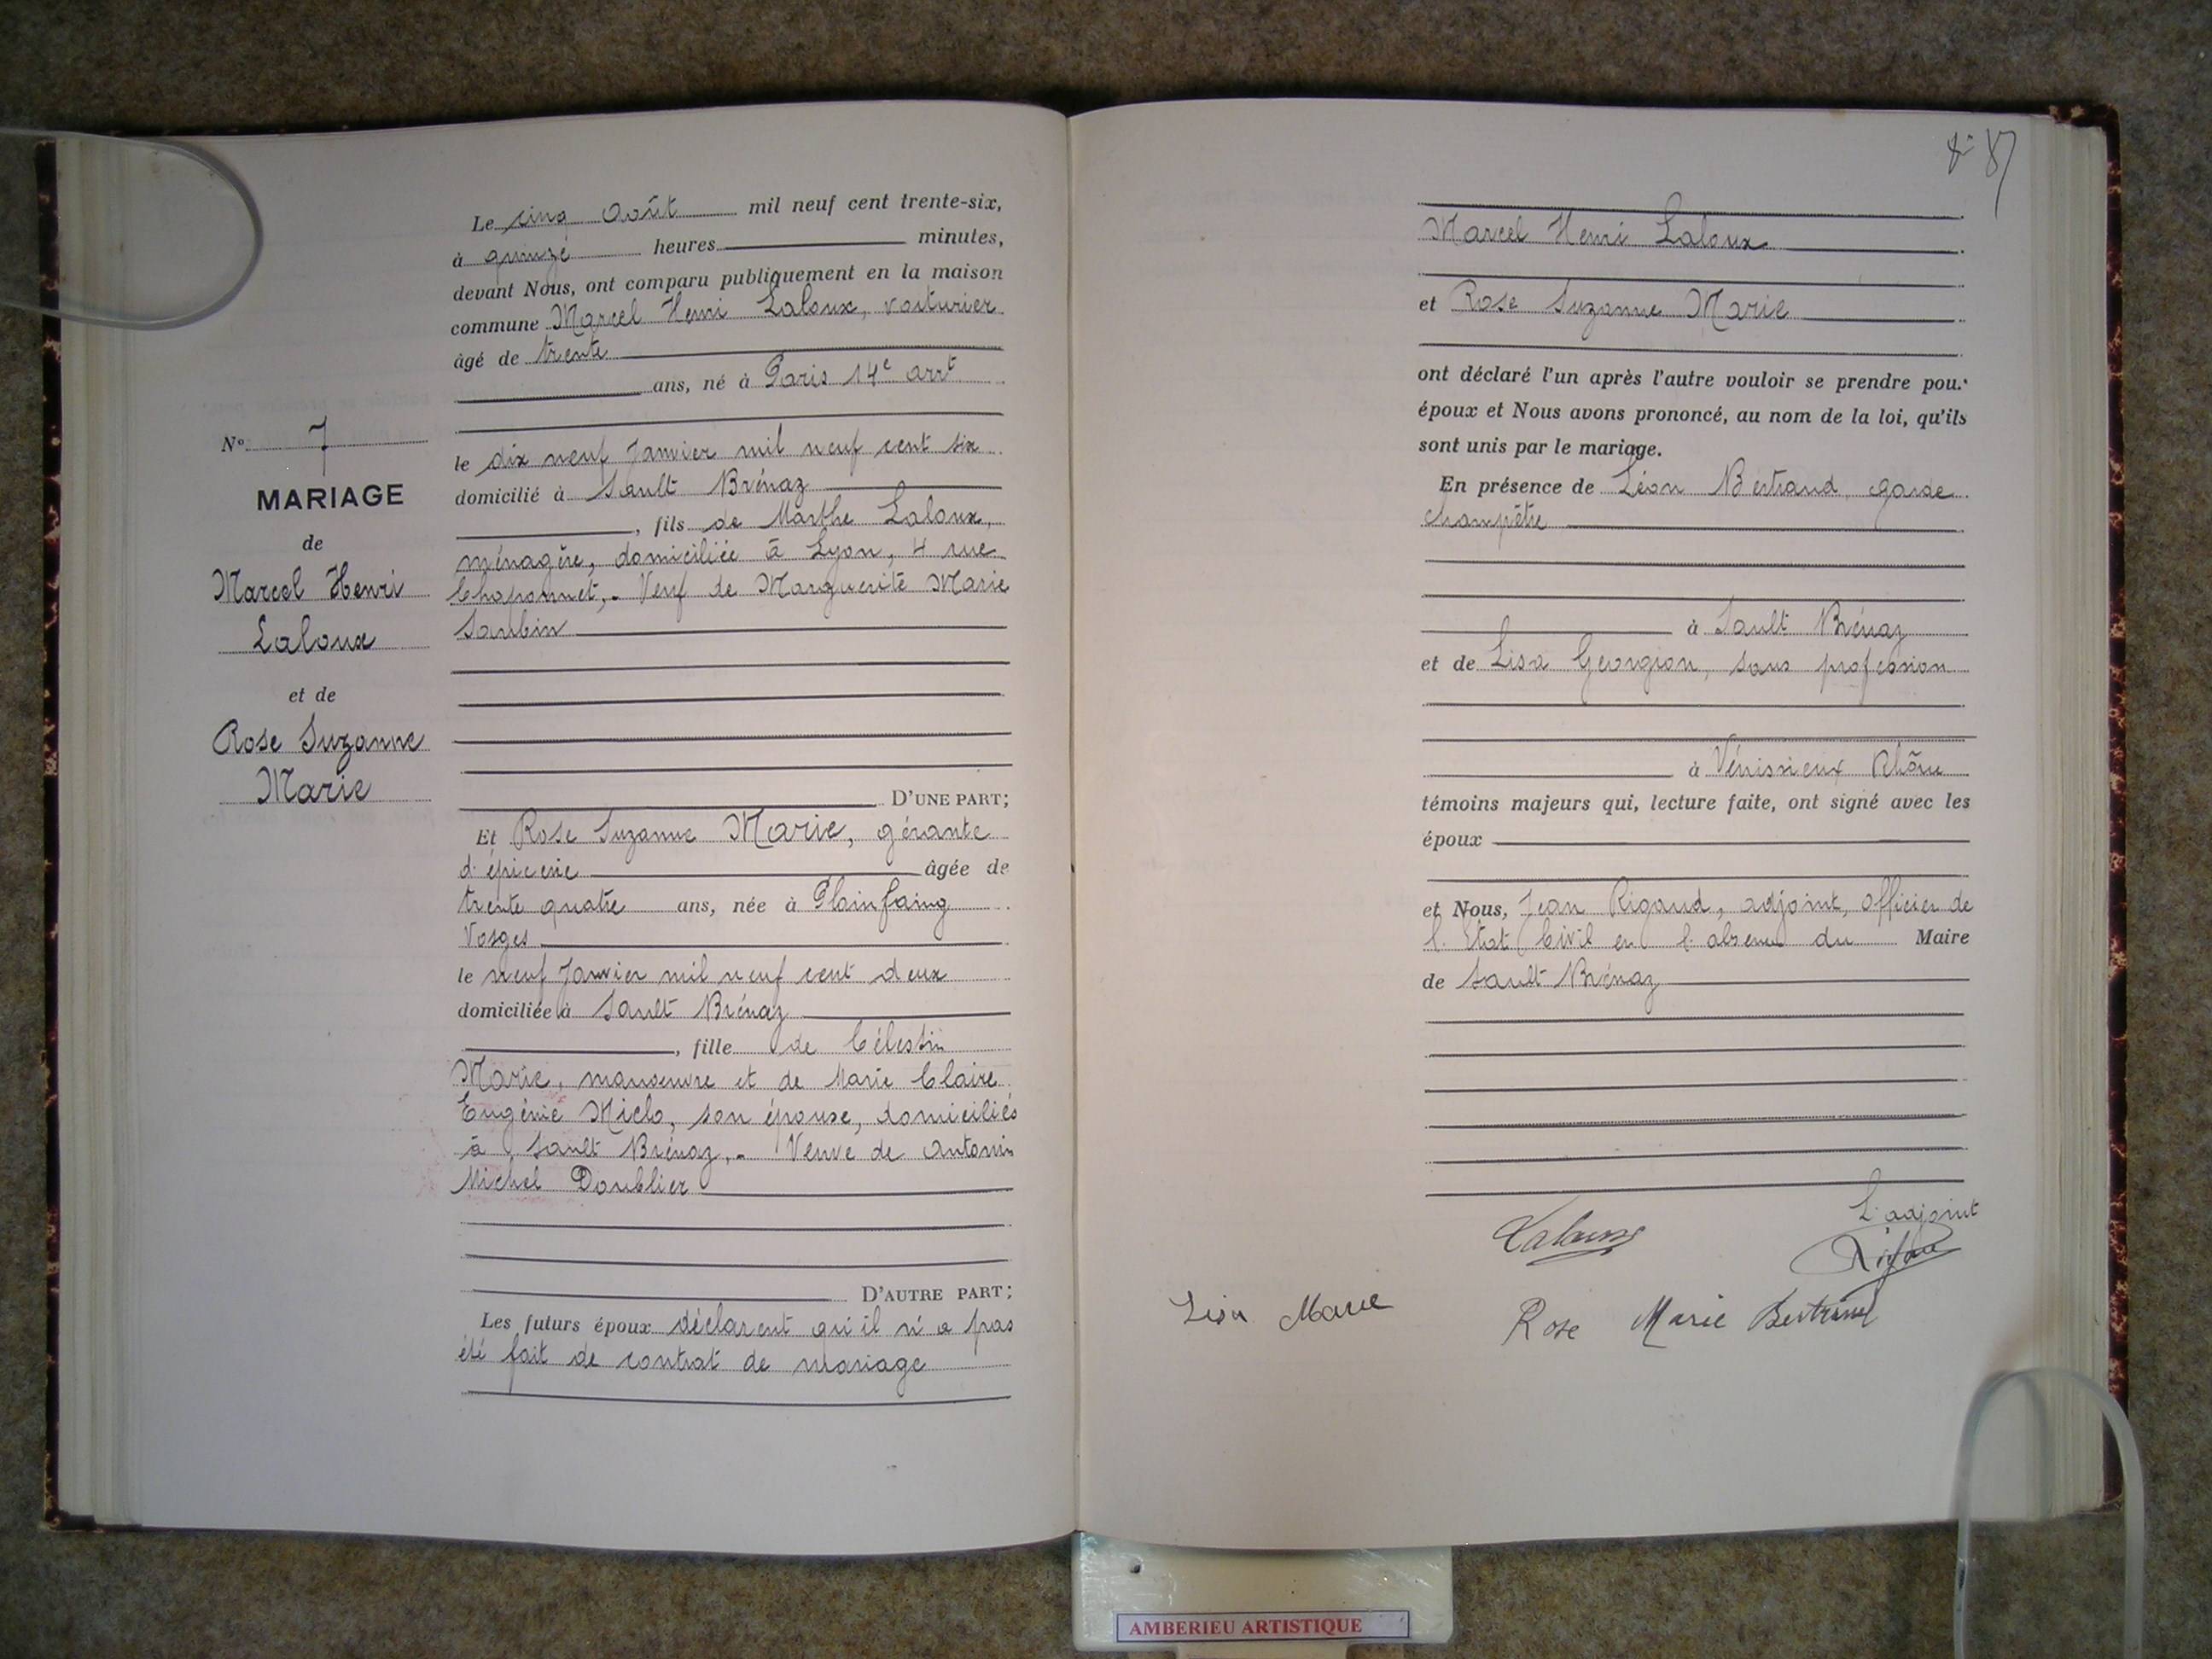 N° 7
MARIAGE
de
Marcel Henri
Laloux
et de
Rose Suzanne
Marie
Le cinq Août mil neuf cent trente-six,
à quinze heures minutes,
devant Nous, ont comparu publiquement en la maison
commune Marcel Henri Laloux, voiturier
âgé de trente
ans, né à Paris 14e arrt
le dix neuf Janvier mil neuf cent six
domicilié à Sault Brénaz
, fils de Marthe Laloux,
ménagère, domiciliée à Lyon, 4 rue
Veuf de Marguerite Marie
Saubin
D'UNE PART;
Et Rose Suzanne Marie, gérante
d'épicerie âgée de
trente quatre ans, née à Plainfaing
Vosges
le neuf Janvier mil neuf cent deux
domiciliée à Sault Brénaz
, fille de Célestin
Marie, manoeuvre et de Marie Claire
Eugénie Miclo, son épouse, domiciliés
à Sault Brénaz,. Veuve de Antonin
Michel Doublier
D'AUTRE PART;
Les futurs époux déclarent qu'il n'a pas
été fait de contrat de mariage
87
Marcel Henri Laloux
et Rose Suzanne Marie
ont déclaré l'un après l'autre vouloir se prendre pour
époux et Nous avons prononcé, au nom de la loi, qu'ils
sont unis par le mariage.
En présence de Léon Bertrand, garde
champêtre
à Sault Brénaz
et de Lisa Georgion, sans profession
à Vénissieux Rhône
témoins majeurs qui, lecture faite, ont signé avec les
époux
et Nous, Jean Rigaud, adjoint, officier de
l'Etat Civil en l'absence du Maire
de Sault Brénaz
L'adjoint
Laloux
Lisa Marie
Rose Marie Bertrand
AMBERIEU ARTISTIQUE